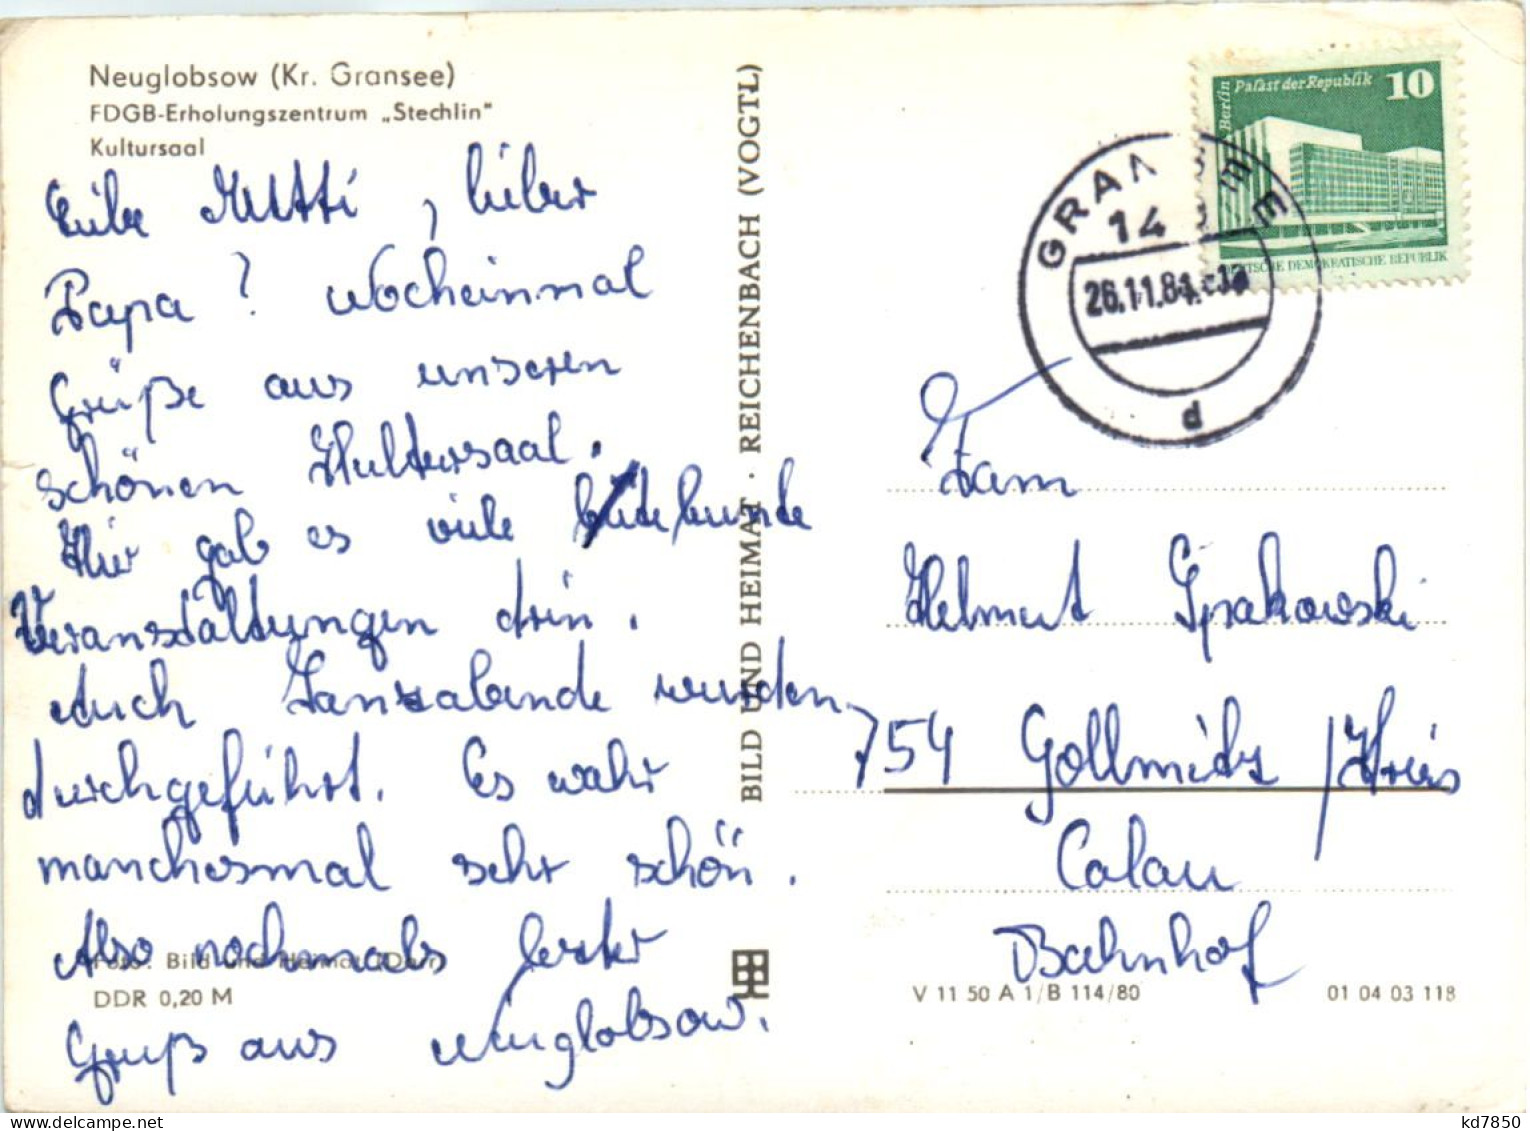 Neuglobsow (Kr. Gransee)
FDGB-Erholungszentrum „Stechlin"
Kultursaal
Liebe Mutti, lieber
Papa! Nocheinmal
Grüße aus unseren
schönen Kultursaal.
Hier gab es viele bunte
Veranstaltungen drin.
Auch Tanzabende wurden
durchgeführt. Es wahr
manchesmal sehr schön.
Also nochmals
Gruß aus Neuglobsow.
Foto: Bild und Heimat
DDR 0,20 M
BILD UND HEIMAT · REICHENBACH (VOGTL)
Berlin Palast der Republik 10
DEUTSCHE DEMOKRATISCHE REPUBLIK
GRANSEE
14
26.11.81
d
Fam
Helmut
754 Gollmitz / Kreis
Calau
Bahnhof
V 11 50 A 1/B 114/80
01 04 03 118
kd7850